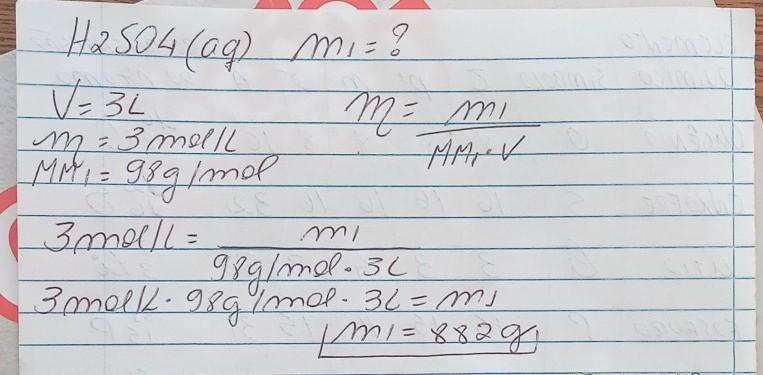 H2SO4(aq) m1=?
V=3L
m=3mol/L
MM1=98g/mol
m= m1
MM1·V
3mol/L= m1
98g/mol·3L
3mol/L·98g/mol·3L=m1
m1=882g